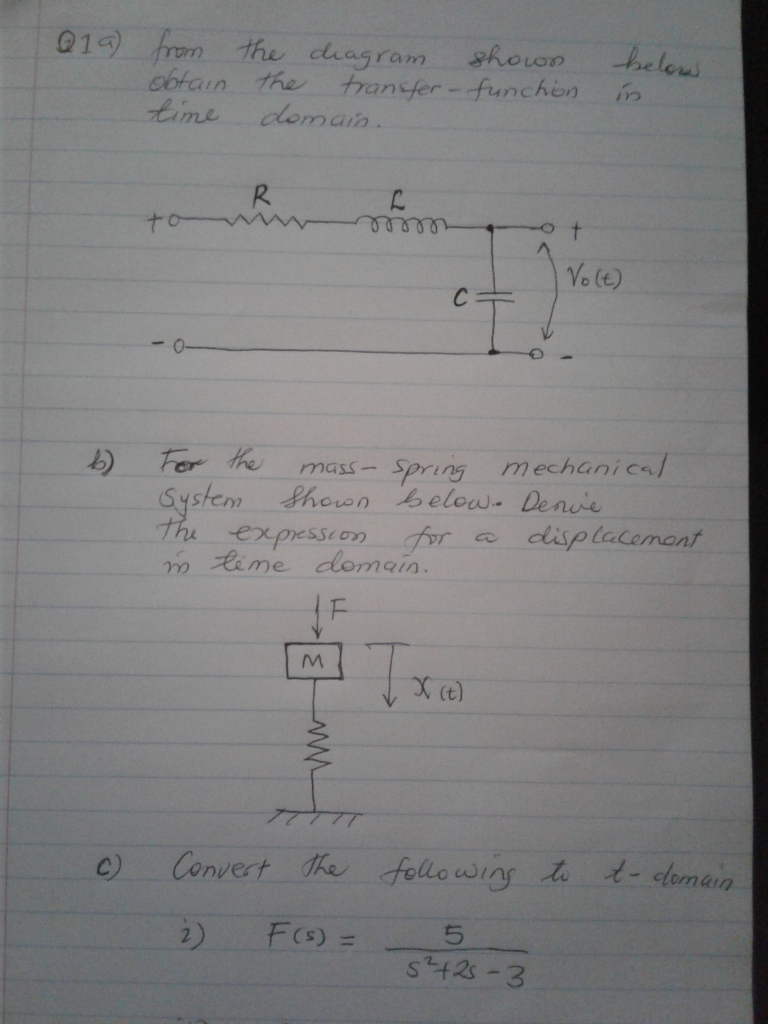 Q1a) from the diagram shown below
obtain the transfer-function in
time domain.
R L
+ +
C Vo(t)
- -
b) For the mass-spring mechanical
System Shown below. Derive
the expression for a displacement
in time domain.
F
M
X(t)
c) Convert the following to t-domain
i) F(s) = 5
s²+2s-3